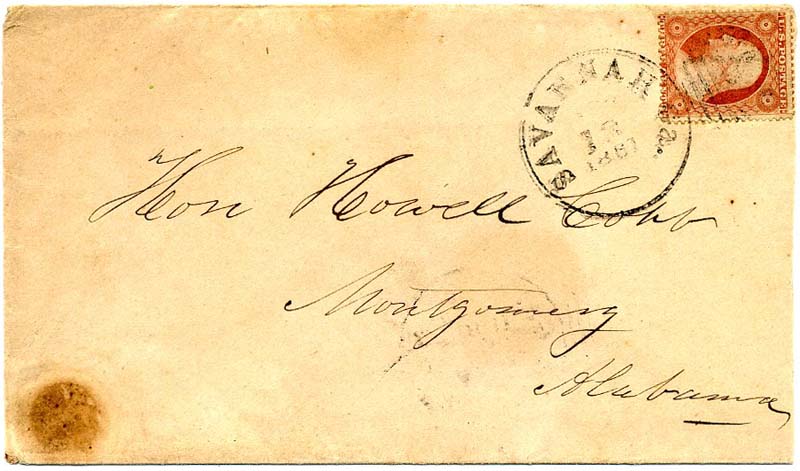 U.S. POSTAGE
SAVANNAH
1861
Hon Howell Cobb
Montgomery
Alabama